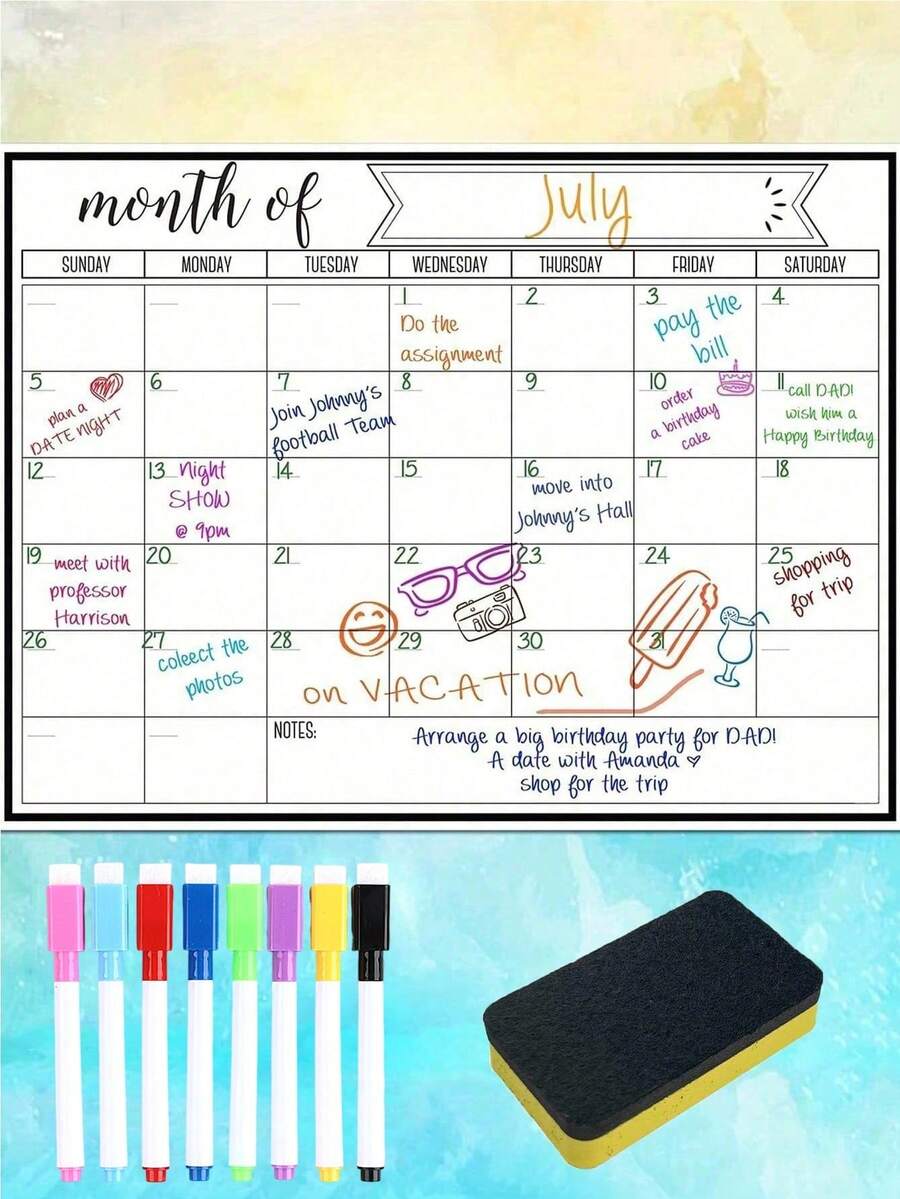 month of July
SUNDAY MONDAY TUESDAY WEDNESDAY THURSDAY FRIDAY SATURDAY
1 2 3 4
Do the
assignment
pay the
bill
5 6 7 8 9 10 11
plan a
DATE NIGHT
Join Johnny's
football Team
order
a birthday
cake
call DAD!
wish him a
Happy Birthday
12 13 14 15 16 17 18
Night
SHOW
@ 9pm
move into
Johnny's Hall
19 20 21 22 23 24 25
meet with
professor
Harrison
shopping
for trip
26 27 28 29 30 31
coleect the
photos
on VACATION
NOTES:
Arrange a big birthday party for DAD!
A date with Amanda
shop for the trip